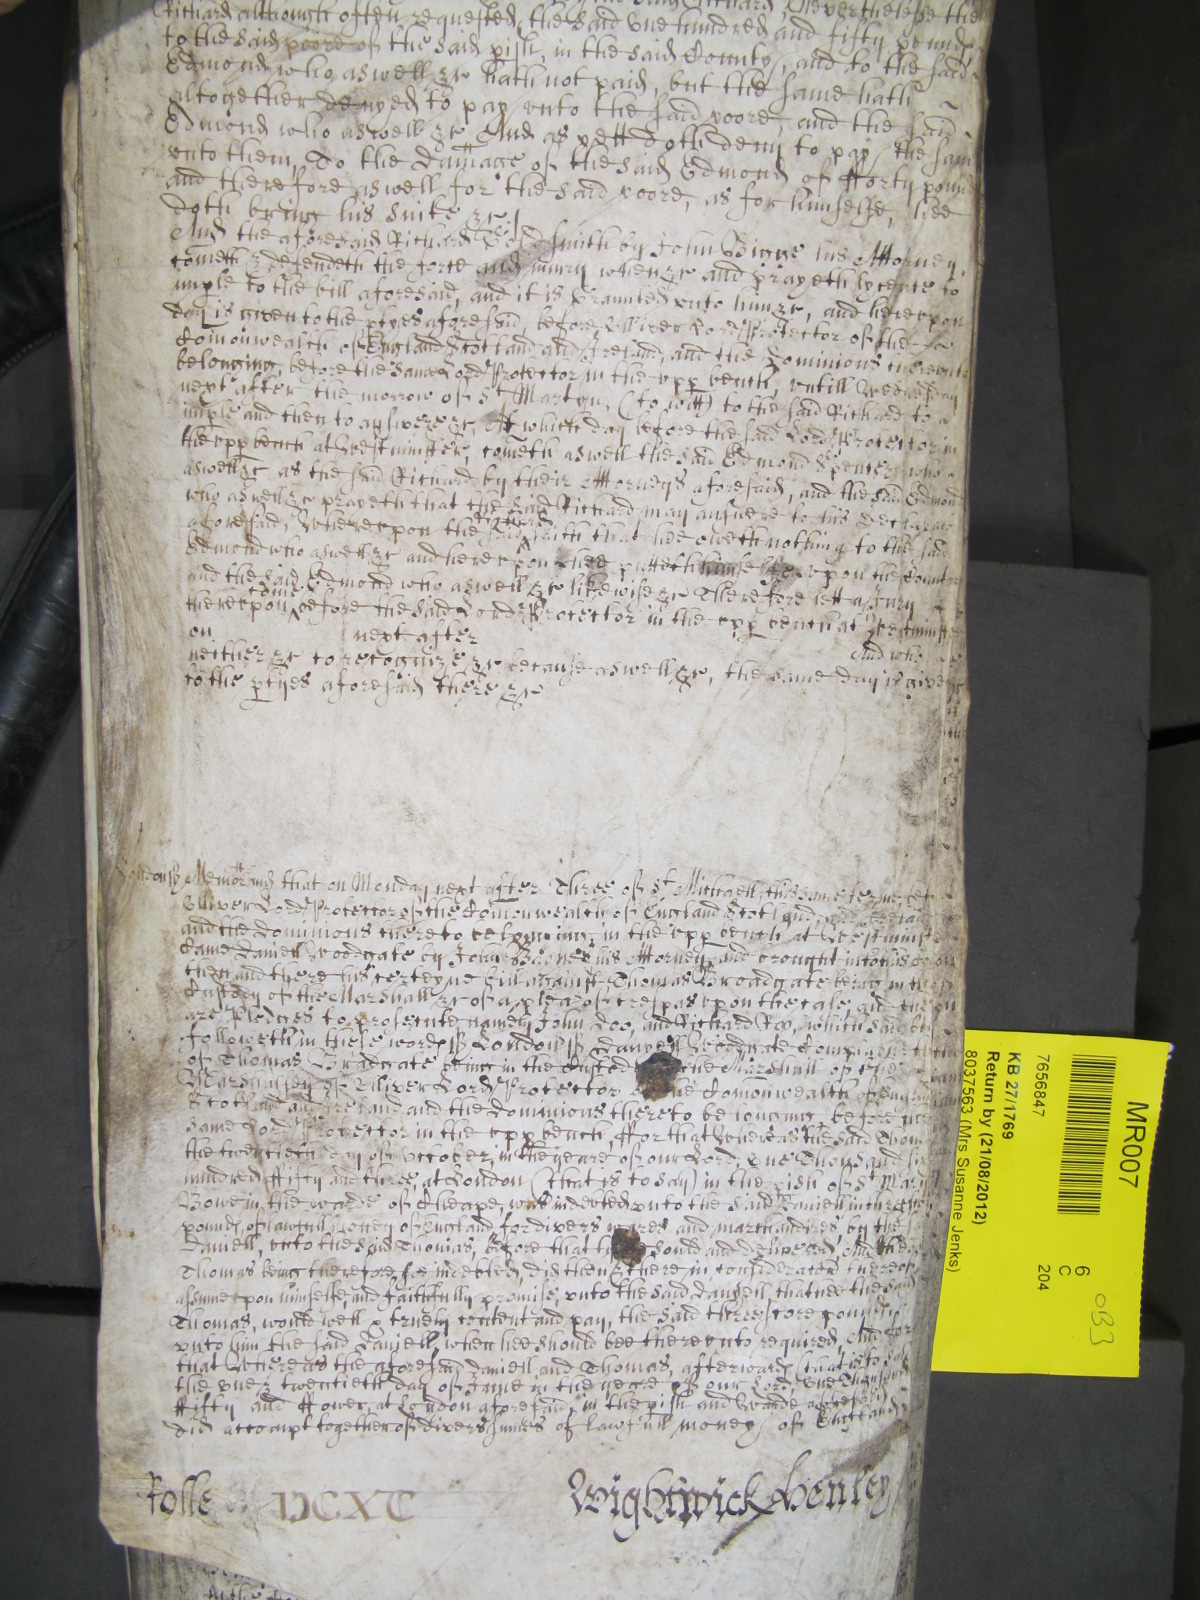 Richard although often requested, the said One hundred and fifty pounds
to the said poore of the said pish, in the said County, and to the said
Edmond who aswell &c hath not paid, but the same hath
altogether denyed to pay unto the said poore, and the said
Edmond who aswell &c And as yett doth deny to pay the same
unto them, To the damage of the said Edmond of fforty pounds
and therefore aswell for the said poore, as for himselfe, hee
doth bring his suite &c
And the aforesaid Richard Smith by John his Attorney,
cometh & defendeth the force and iniury when &c and prayeth lycence to
imple to the bill aforesaid, and it is graunted unto him &c, and hereupon
day is given to the ptyes aforesaid, before Oliver Lord Protector of the
Comonwealth of England Scotland and Ireland, and the Dominions thereunto
belonging, before the same Lord Protector in the upp bench, untill Wednesday
next after the morrow of St Martyn, (to witt) to the said Richard to
imple and then to answere &c, At which day before the said Lord Protector in
the upp bench at Westminster, cometh aswell the said Edmond Spencer who
aswell &c as the said Richard by their Attorneys aforesaid, and the said Edmond
who aswell &c prayeth that the said Richard may answere to his Declaracon
aforesaid, Whereupon the said Richard saith that hee oweth nothing to the said
Edmond who aswell &c and hereupon hee putteth himselfe upon the Country
and the said Edmond who aswell &c likewise &c Therefore lett a Jury
thereupon come before the said Lord Protector in the upp bench at Westminster
on next after And who
neither &c to recognize &c because aswell &c, the same day is given
to the ptyes aforesaid there &c
London ss Memorand that on Monday next after Three of St Michaell this same terme, before
Oliver Lord Protector of the Comonwealth of England Scotland, and Ireland
and the dominions thereto belonging, in the upp bench at Westminster
came Daniell Woodgate by John his Attorney, and brought into the Court
then and there his certeyne bill against Thomas Broadgate being in the
Custody of the Marshall &c of a plea of trespas upon the case, and there
are Pledges to prosecute, namely John Doo, and Richard Roo, which said bill
followeth in these words ss London ss Daniell Woodgate Complaineth
of Thomas Broadgate being in the Custody the Marshall of the
Marshalsey of Oliver Lord Protector of the Comonwealth of England
Scotland and Ireland and the Dominions thereto belonging, before the
same Lord Protector in the upp bench, ffor that Whereas the said Thomas
the twentieth day of October, in the yeare of our Lord, One Thousand six
hundred ffifty and three, at London (that is to say) in the pish of St Mary
Bowe in the warde of Cheape, was indebted unto the said Daniell in threescore
pounds, of lawfull money of England for divers wares and marchandizes, by the said
Daniell, unto the said Thomas, before that tyme sould and delivered, And the said
Thomas being therefore soe indebted, did then & there in consideracon thereof
assume upon himselfe, and faithfully promise, unto the said Daniell, that hee the said
Thomas, would well & truely content and pay, the said threescore pounds
unto him the said Daniell, when hee should bee thereunto required, And for
that Whereas the aforesaid Daniell and Thomas, afterwards (that is to say)
the one & twentieth day of June in the yeare of our Lord, One thousand
ffifty and ffower, at London aforesaid, in the pish and Warde aforesaid
did accompt together of divers sumes of lawfull money of England
Rolle DCXC Wightwick & Henley
MR007
7656847
KB 27/1769
Return by (21/08/2012)
8037563 (Mrs Susanne Jenks)
6
C
204